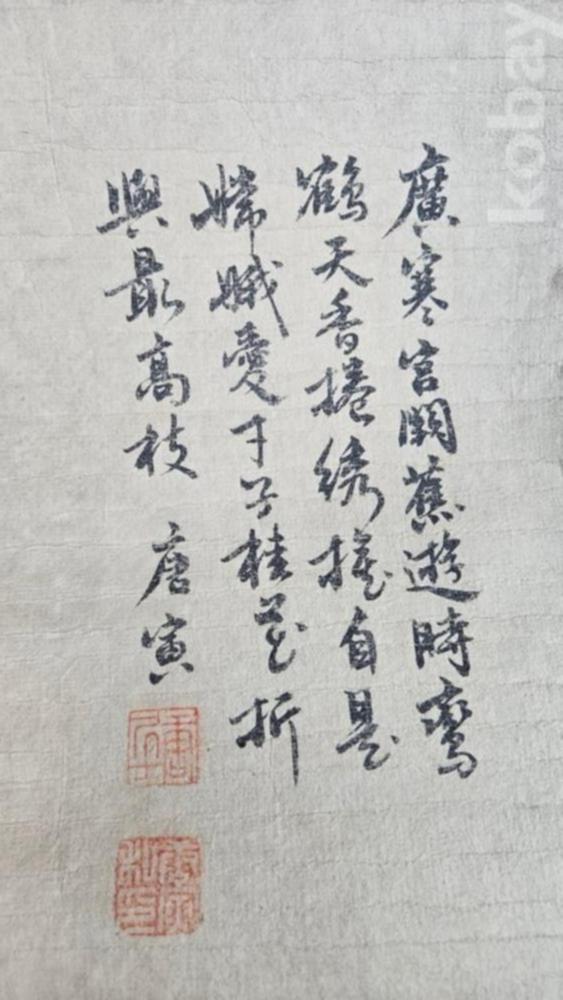 廣寒宮闕舊遊時鸞
鶴天香捲綉旗自是
嫦娥愛才子桂花折
與最高枝 唐寅
kobay